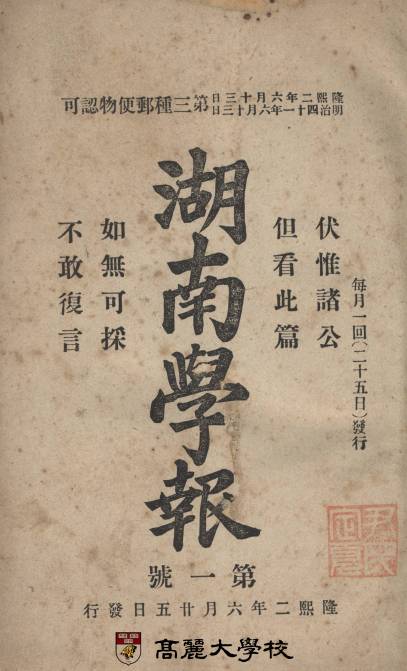 隆熙二年六月十三日
明治四十一年六月十三日
第三種郵便物認可
每月一回(二十五日)發行
伏惟諸公
但看此篇
湖南學報
如無可採
不敢復言
第一號
隆熙二年六月廿五日發行
高麗大學校